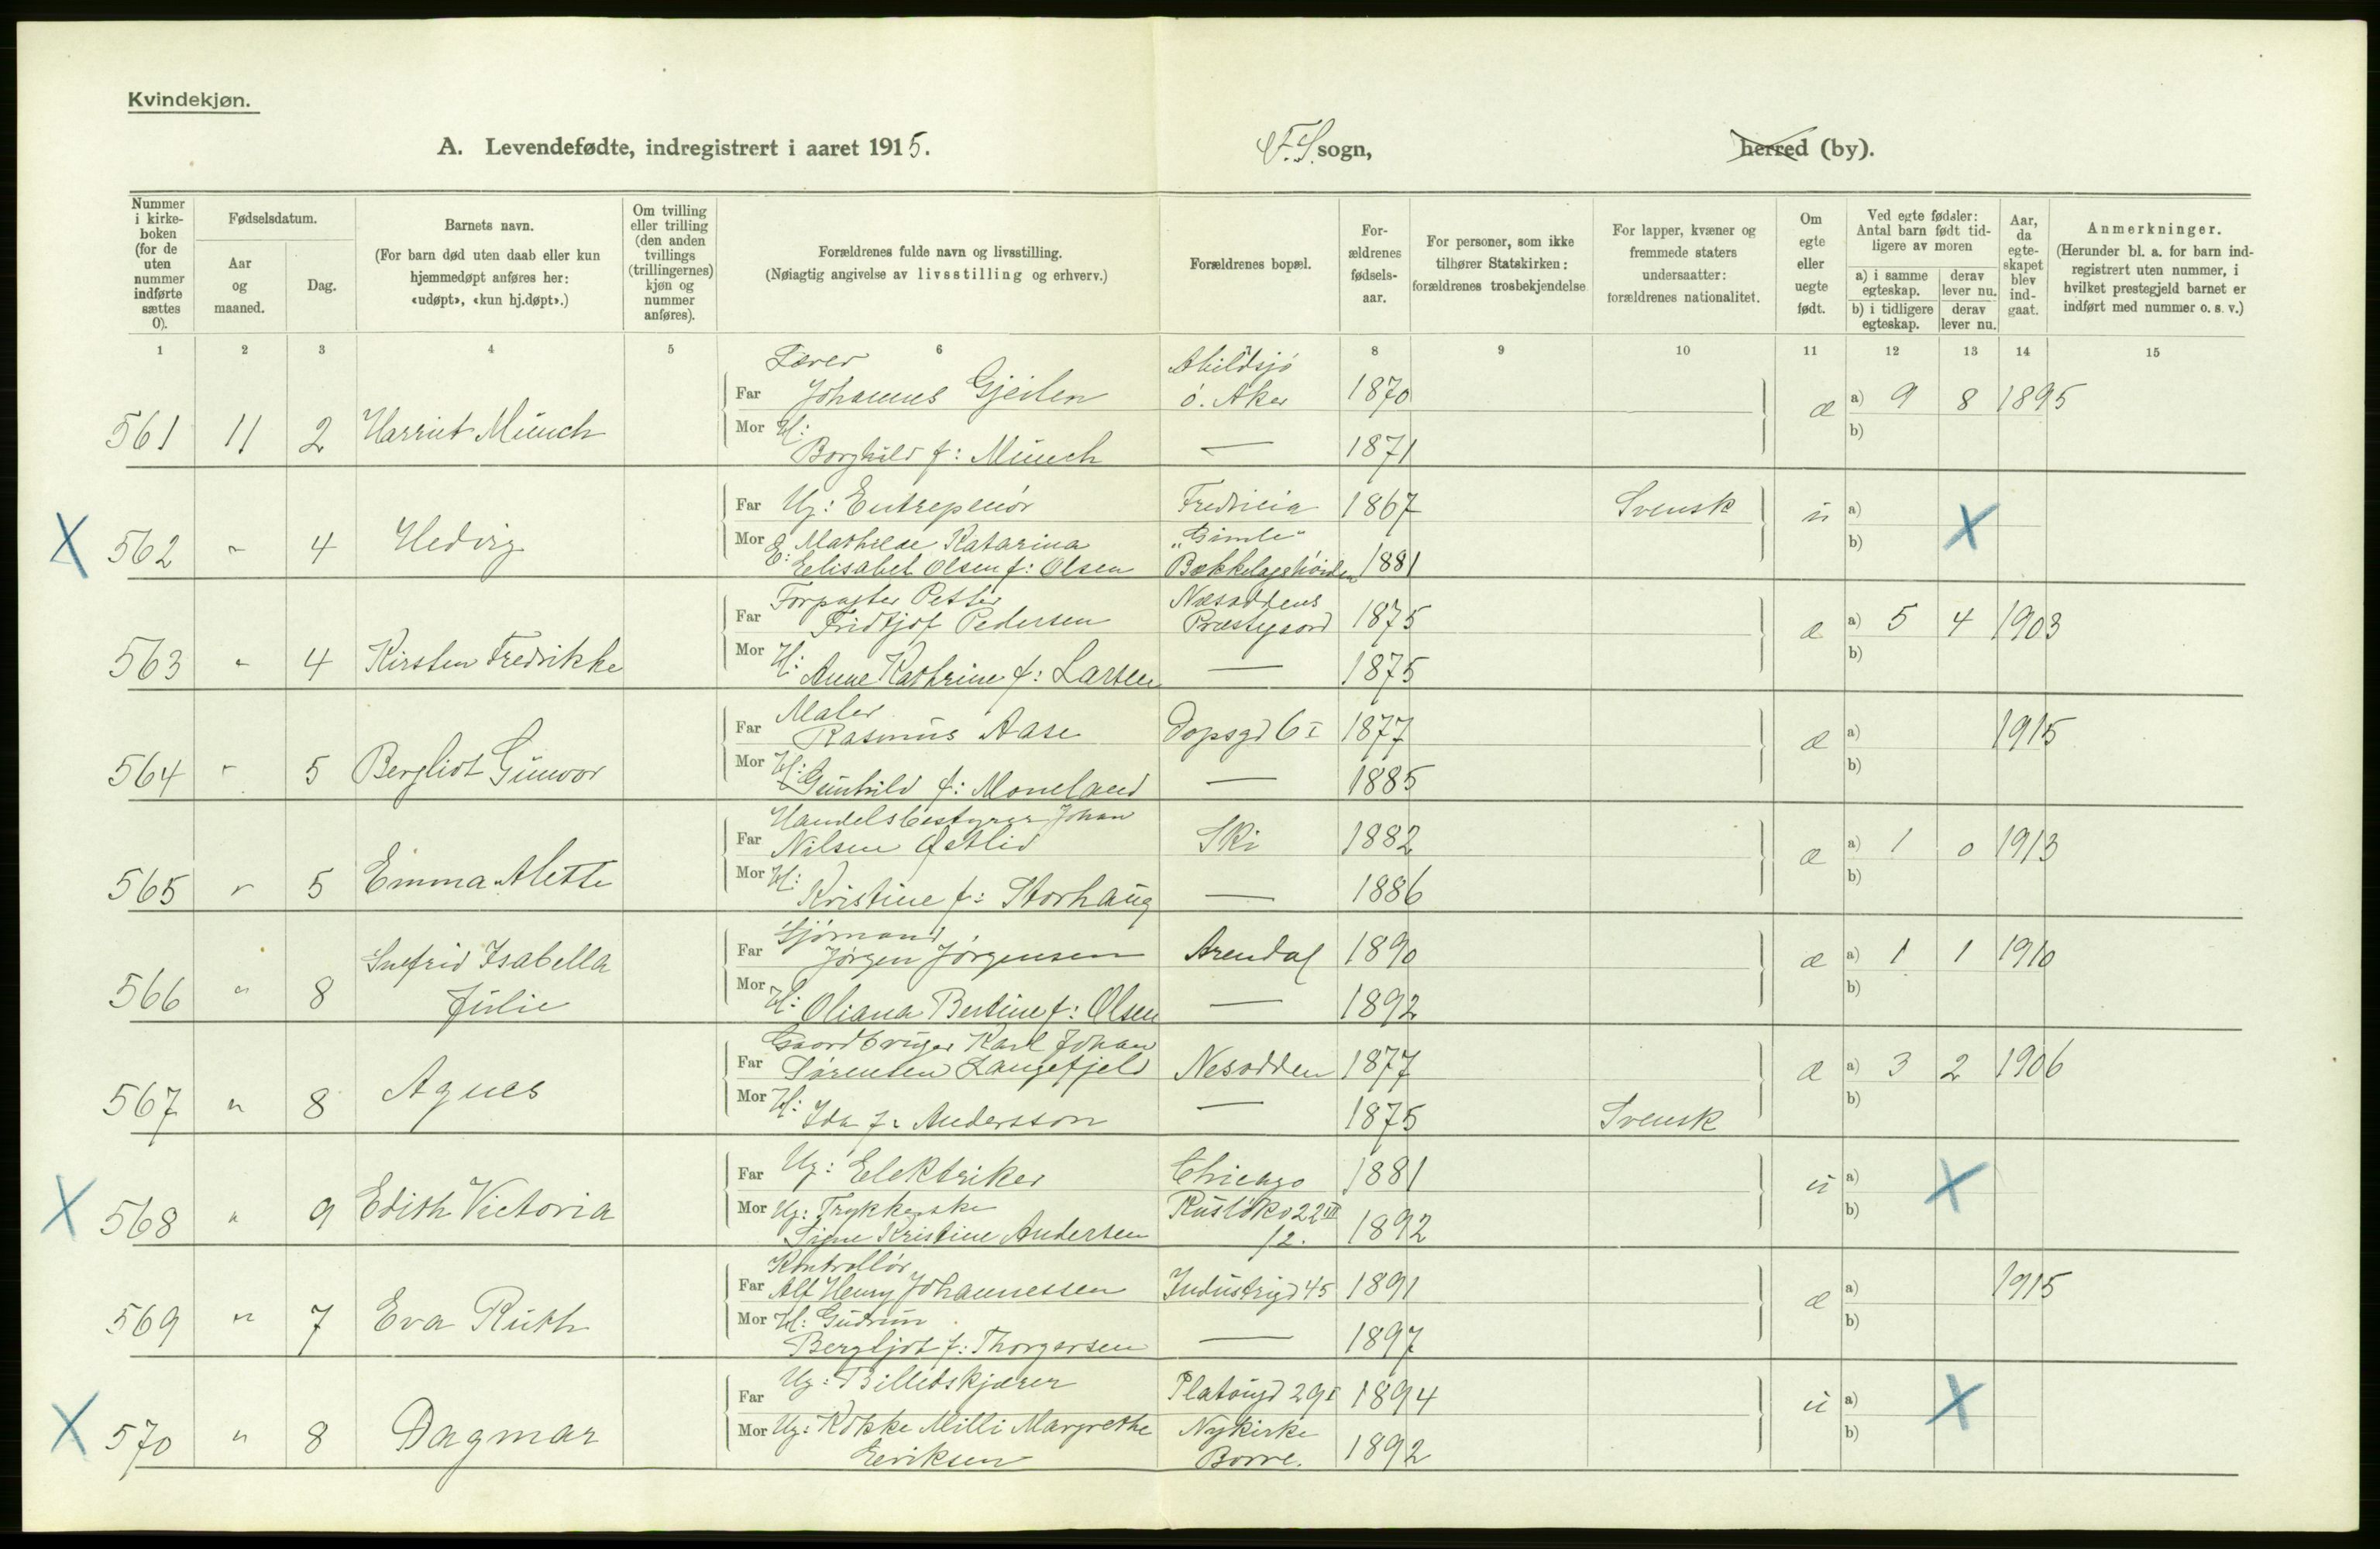 Kvindekjøn.
A. Levendefødte, indregistrert i aaret 1915.
F.S. sogn,
herred (by).
Nummer i kirkeboken (for de uten nummer indførte sættes 0).
Fødselsdatum.
Aar og maaned.
Dag.
Barnets navn.
(For barn død uten daab eller kun hjemmedøpt anføres her: «udøpt», «kun hj.døpt».)
Om tvilling eller trilling (den anden tvillings (trillingernes) kjøn og nummer anføres).
Forældrenes fulde navn og livsstilling.
(Nøiagtig angivelse av livsstilling og erhverv.)
Forældrenes bopæl.
Forældrenes fødselsaar.
For personer, som ikke tilhører Statskirken: forældrenes trosbekjendelse
For lapper, kvæner og fremmede staters undersaatter: forældrenes nationalitet.
Om egte eller uegte født.
Ved egte fødsler: Antal barn født tidligere av moren
a) i samme egteskap. derav lever nu.
b) i tidligere egteskap. derav lever nu.
Aar, da egteskapet blev indgaat.
Anmerkninger.
(Herunder bl. a. for barn indregistrert uten nummer, i hvilket prestegjeld barnet er indført med nummer o. s. v.)
1 2 3 4 5 6 7 8 9 10 11 12 13 14 15
Lærer Abildsjö
Far Johannes Gjeilen ö. Aker 1870 æ a) 9 8 1895
561 11 2 Harriet Münch
Mor H: Borghild f: Münch — 1871 b)
Far Ug: Entreprenör Fredricia 1867 Svensk ü a)
X 562 " 4 Hedvig X
Mor E: Mathilde Katarina "Gimle" b)
Elisabet Olsen f: Olsen Bækkelagshöiden 1881
Forpagter Petter Næsoddens
Far Fridtjof Pedersen Præstegaard 1875 æ a) 5 4 1903
563 " 4 Kirsten Fredrikke
Mor H: Anne Kathrine f: Larsen — 1875 b)
Maler
Far Rasmus Aase Dopsgd 6 I 1877 æ a) 1915
564 " 5 Bergliot Gunvor
Mor H: Gunhild f: Moneland — 1885 b)
Handelsbestyrer Johan
Far Nilsen Østlid Ski 1882 æ a) 1 0 1913
565 " 5 Emma Alette
Mor H: Kristine f: Storhaug — 1886 b)
Sjömand
Far Jörgen Jörgensen Arendal 1890 æ a) 1 1 1910
566 " 8 Snefrid Isabella
Julie
Mor H: Oliana Bertine f: Olsen — 1892 b)
Gaardbruger Karl Johan
Far Sörensen Langefjeld Nesodden 1877 æ a) 3 2 1906
567 " 8 Agnes
Mor H: Ida f: Andersson — 1875 Svensk b)
Far Ug: Elektriker Chicago 1881 ü a)
X 568 " 9 Edith Victoria X
Mor Ug: Trykkerske Rüslökv 22 III b)
Signe Kristine Andersen 12. 1892
Kontrollör
Far Alf Henry Johannessen Industrigd 45 1891 æ a) 1915
569 " 7 Eva Ruth
Mor H: Gudrun b)
Bergljot f: Thorgersen — 1897
Far Ug: Billedskjærer Platougd 29 I 1894 ü a)
X 570 " 8 Dagmar X
Mor Ug: Kokke Milli Margrethe Nykirke b)
Eeriksen Borre. 1892